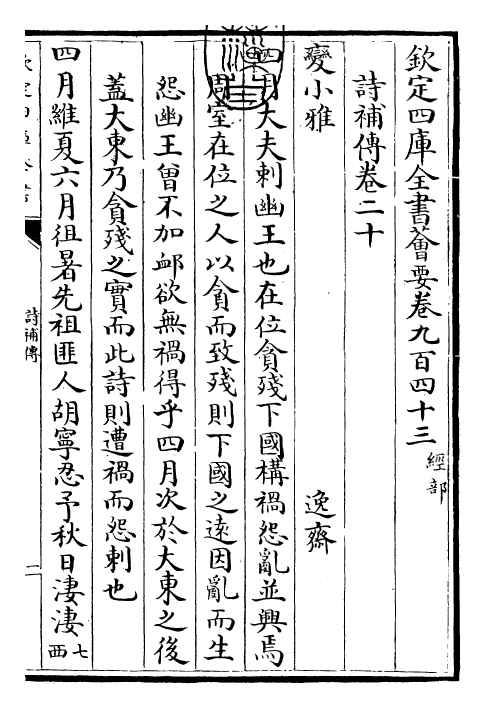 欽定四庫全書薈要卷九百四十三 經部
詩補傳卷二十
變小雅 逸齋
四月大夫刺幽王也在位貪殘下國構禍怨亂並興焉
周室在位之人以貪而致殘則下國之逺因亂而生
怨幽王曽不加䘏欲無禍得乎四月次於大東之後
蓋大東乃貪殘之實而此詩則遭禍而怨刺也
四月維夏六月徂暑先祖匪人胡寧忍予秋日淒淒七西
詩補傳
一